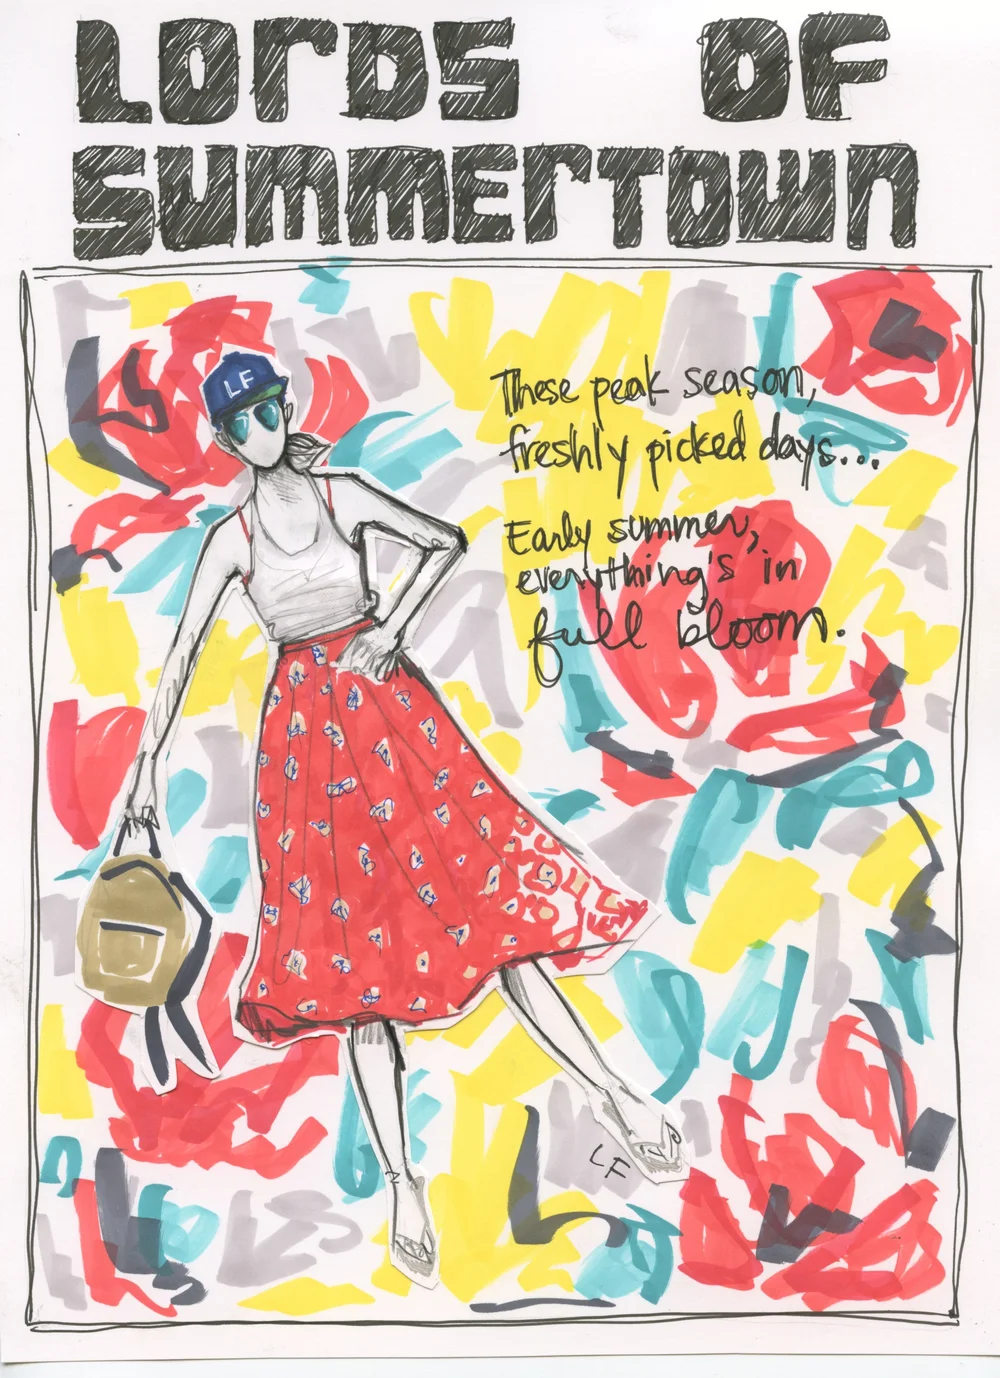 LOrDS OF
SUMMErTOWN
LF
These peak season,
freshly picked days...
Early summer,
everything's in
full bloom.
LF